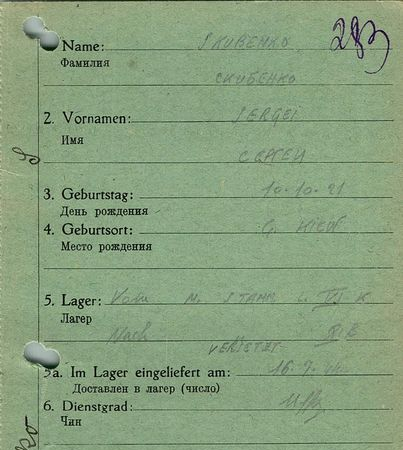 Name: SKUBENKO 283
Фамилия
СКУБЕНКО
2. Vornamen: SERGEI
Имя
СЕРГЕЙ
3. Geburtstag: 10.10.21
День рождения
4. Geburtsort: G. KIEW
Место рождения
5. Lager: Vom M. STAMM L. VI K
Лагерь
Nach
VERSETZT
5a. Im Lager eingeliefert am: 16.9.
Доставлен в лагерь (число)
6. Dienstgrad:
Чин